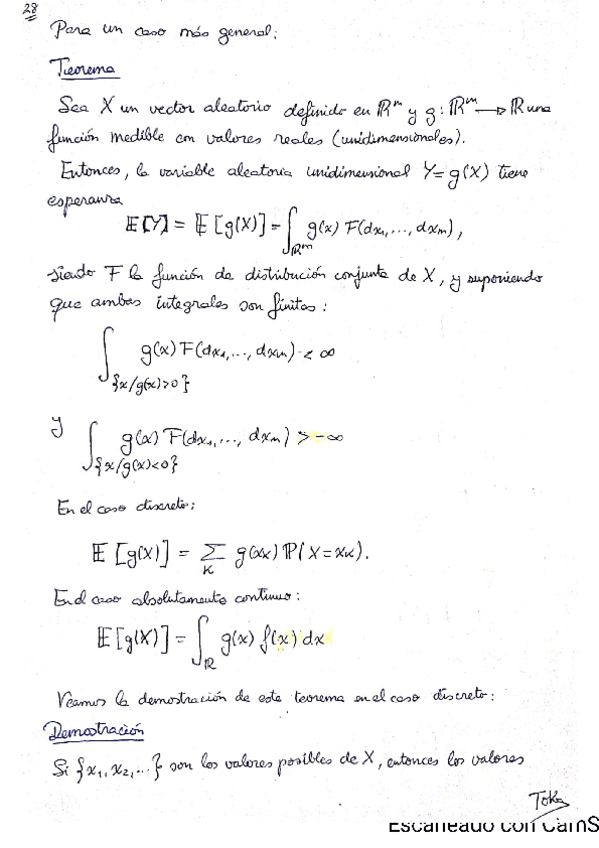 28
Para un caso más general:
Teorema
Sea X un vector aleatorio definido en ℝᵐ y g: ℝᵐ → ℝ una
función medible con valores reales (unidimensionales).
Entonces, la variable aleatoria unidimensional Y = g(X) tiene
esperanza
𝔼[Y] = 𝔼[g(X)] = ∫_{ℝᵐ} g(x) F(dx₁,..., dxₘ),
siendo F la función de distribución conjunta de X, y suponiendo
que ambas integrales son finitas:
∫_{{x/g(x)>0}} g(x) F(dx₁,..., dxₘ) < ∞
y ∫_{{x/g(x)<0}} g(x) F(dx₁,..., dxₘ) > -∞
En el caso discreto:
𝔼[g(X)] = Σ_K g(xₖ) ℙ(X = xₖ).
En el caso absolutamente continuo:
𝔼[g(X)] = ∫_ℝ g(x) f(x) dx
Veamos la demostración de este teorema en el caso discreto:
Demostración
Si {x₁, x₂, ...} son los valores posibles de X, entonces los valores
Escaneado con CamS